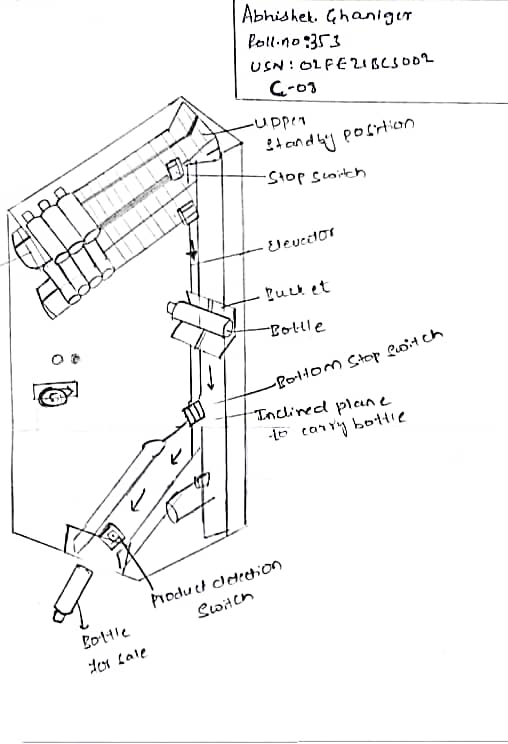 Abhishek. Ghaniger
Roll.no: 353
USN: 02FE21BCS002
C-03
Upper
standby position
Stop switch
Elevator
Bucket
Bottle
Bottom Stop switch
Inclined plane
to carry bottle
Product detection
Switch
Bottle
for sale